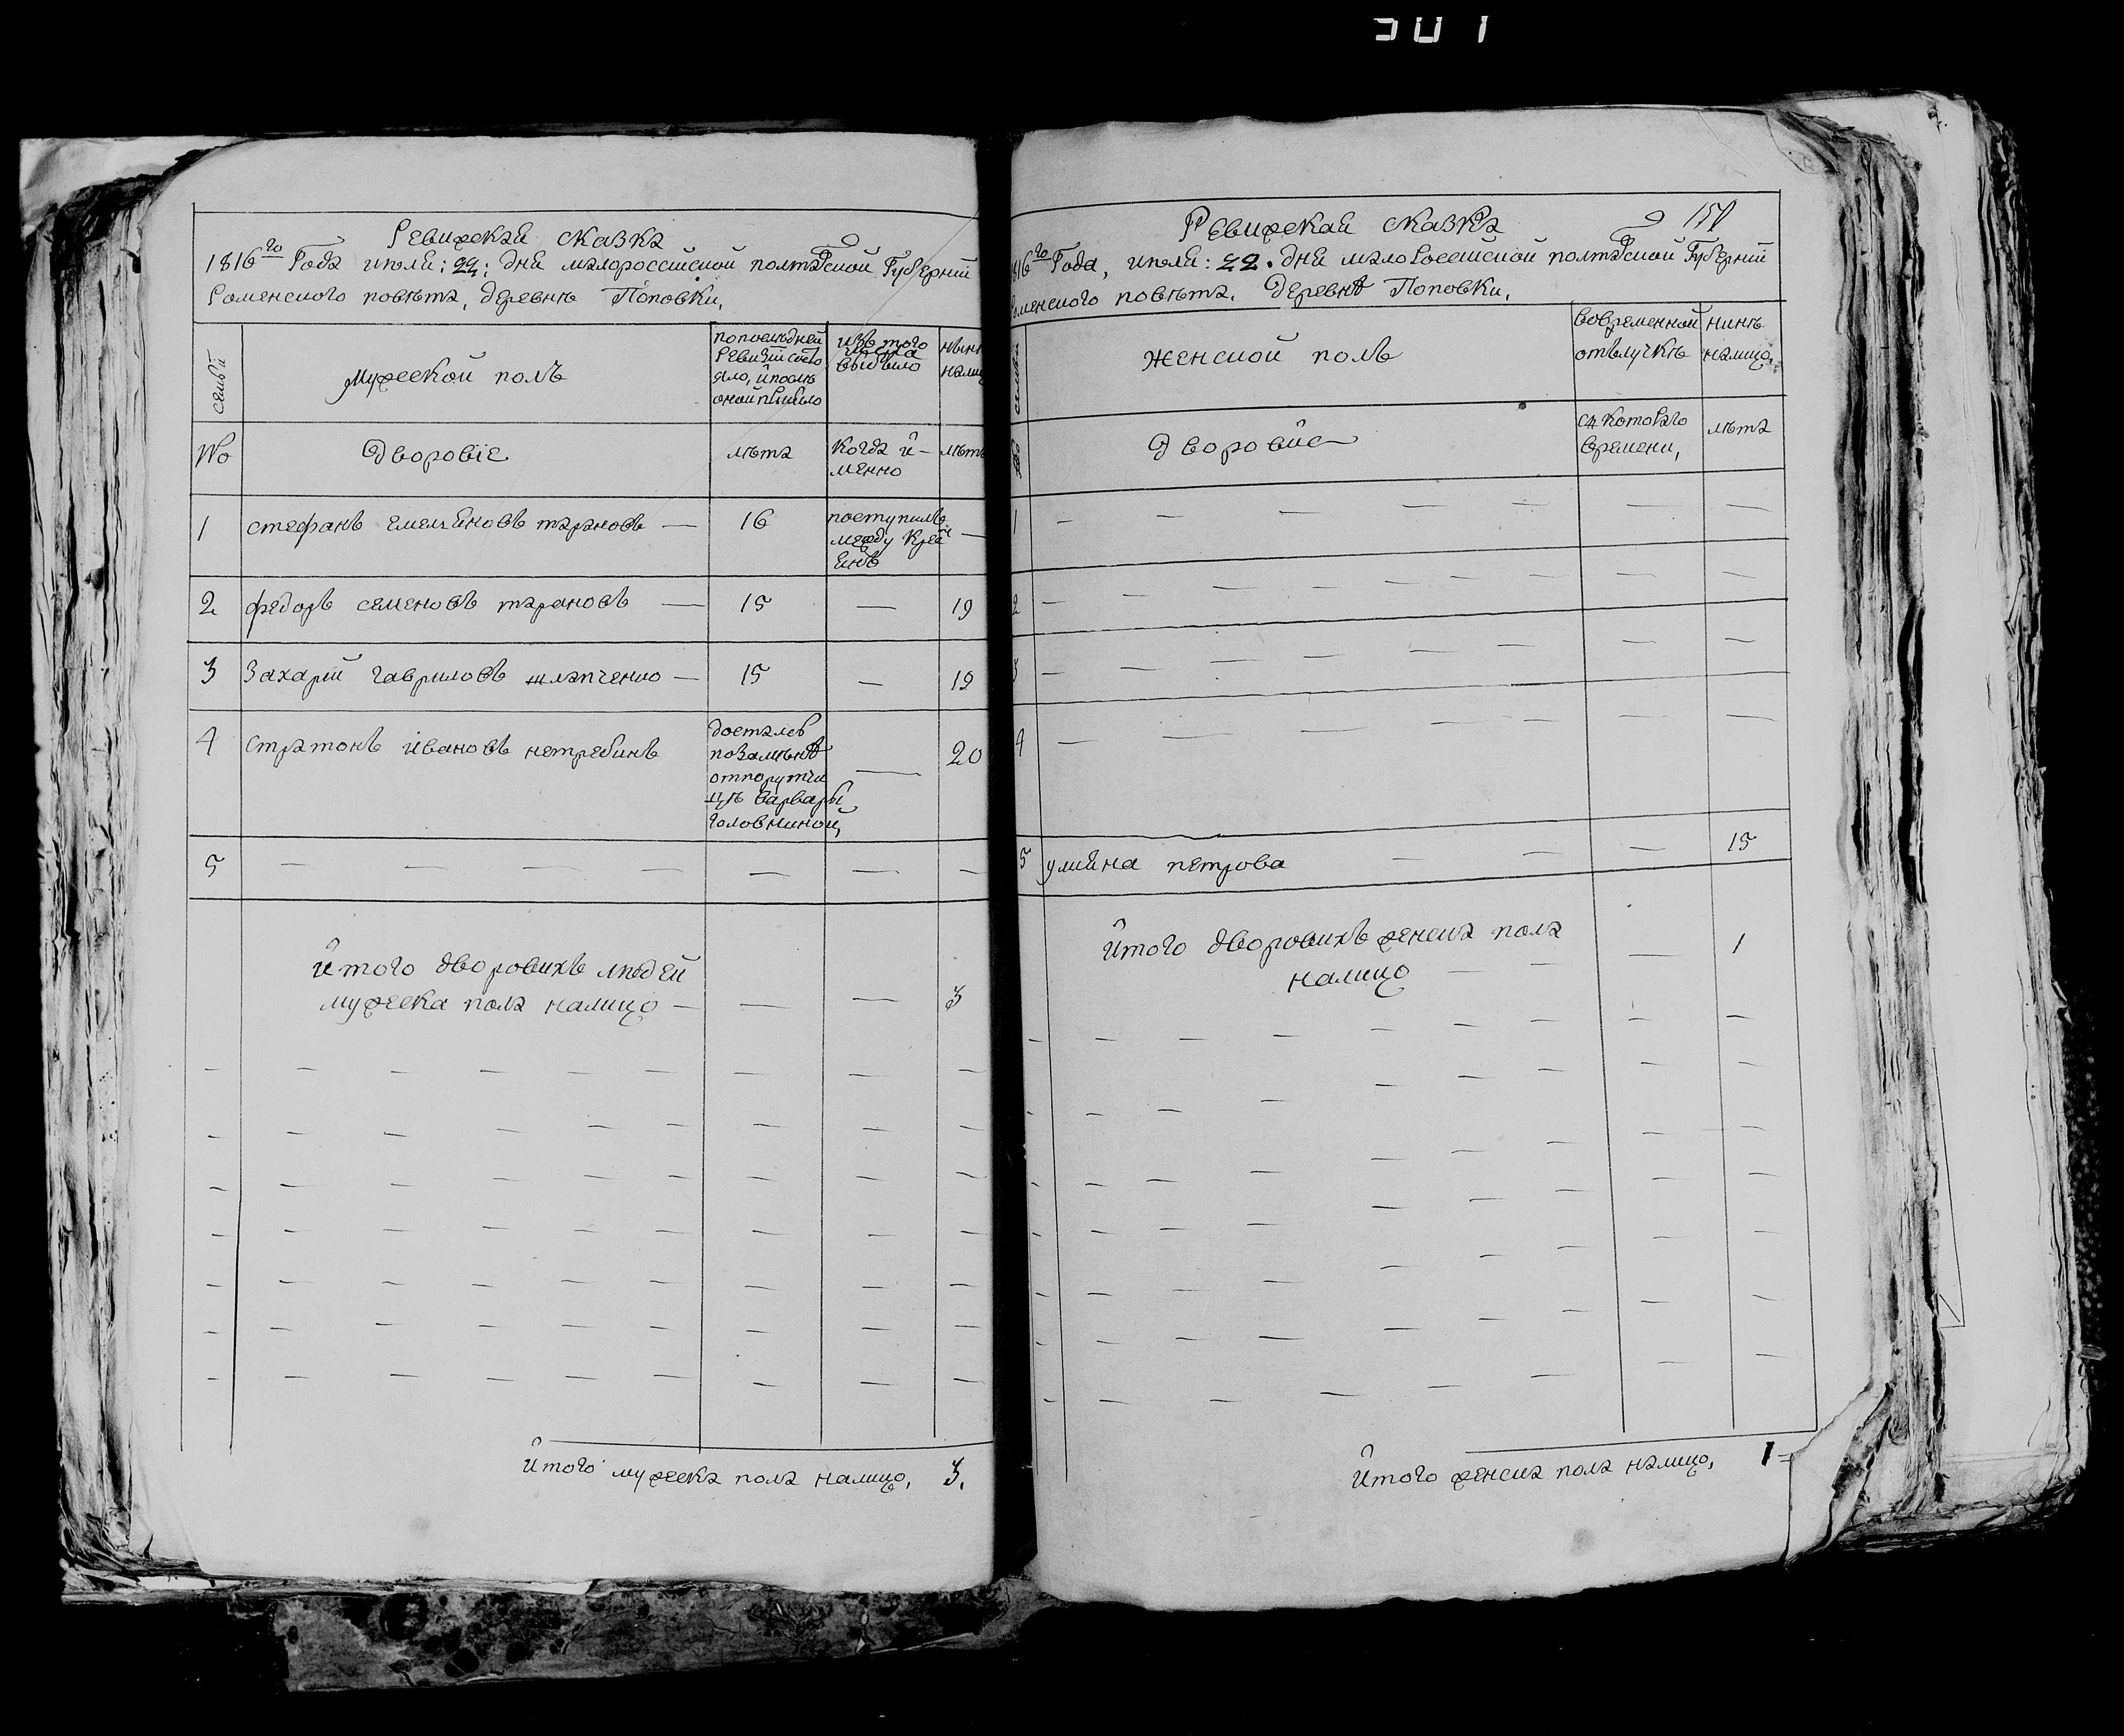 501
Ревижскаи сказка
1816го Года июли: 22: дни малороссииской полтавской Губернии
Роменского повѣта, деревнѣ Поповки,
семьи
Мужеской полъ
попослѣдней
Ревизии состо
яло, и послѣ
оной прибыло
изъ того
числа
выбыло
нынѣ
налиц
№
Дворовіе
лѣта
Когда и-
менно
лѣта
1
стефанъ емельяновъ тарановъ —
16
поступилъ
между крес
янъ
—
2
федоръ семеновъ тарановъ —
15
—
19
3
Захарий гавриловъ шлапченко —
15
—
19
4
стратонъ ивановъ нетребинъ
достался
позамѣнѣ
отпорутчи
цѣ варвары
головниной,
—
20
5
Итого дворовихъ людей
мужеска пола налицо — — —
3
Итого мужеска пола налицо, 3.
Ревижскаи сказка
1816го Года, июли: 22. дни малоросииской полтавской Губернии
Роменского повѣта. деревнѣ Поповки,
семьи
женской полъ
вовременной
отълучкѣ
нинѣ
налицо,
№
Дворовие
съ котораго
времени,
лѣта
1
2
3
4
5
улияна петрова
15
Итого дворовихъ женска пола
налицо
1
Итого женска пола налицо, 1=